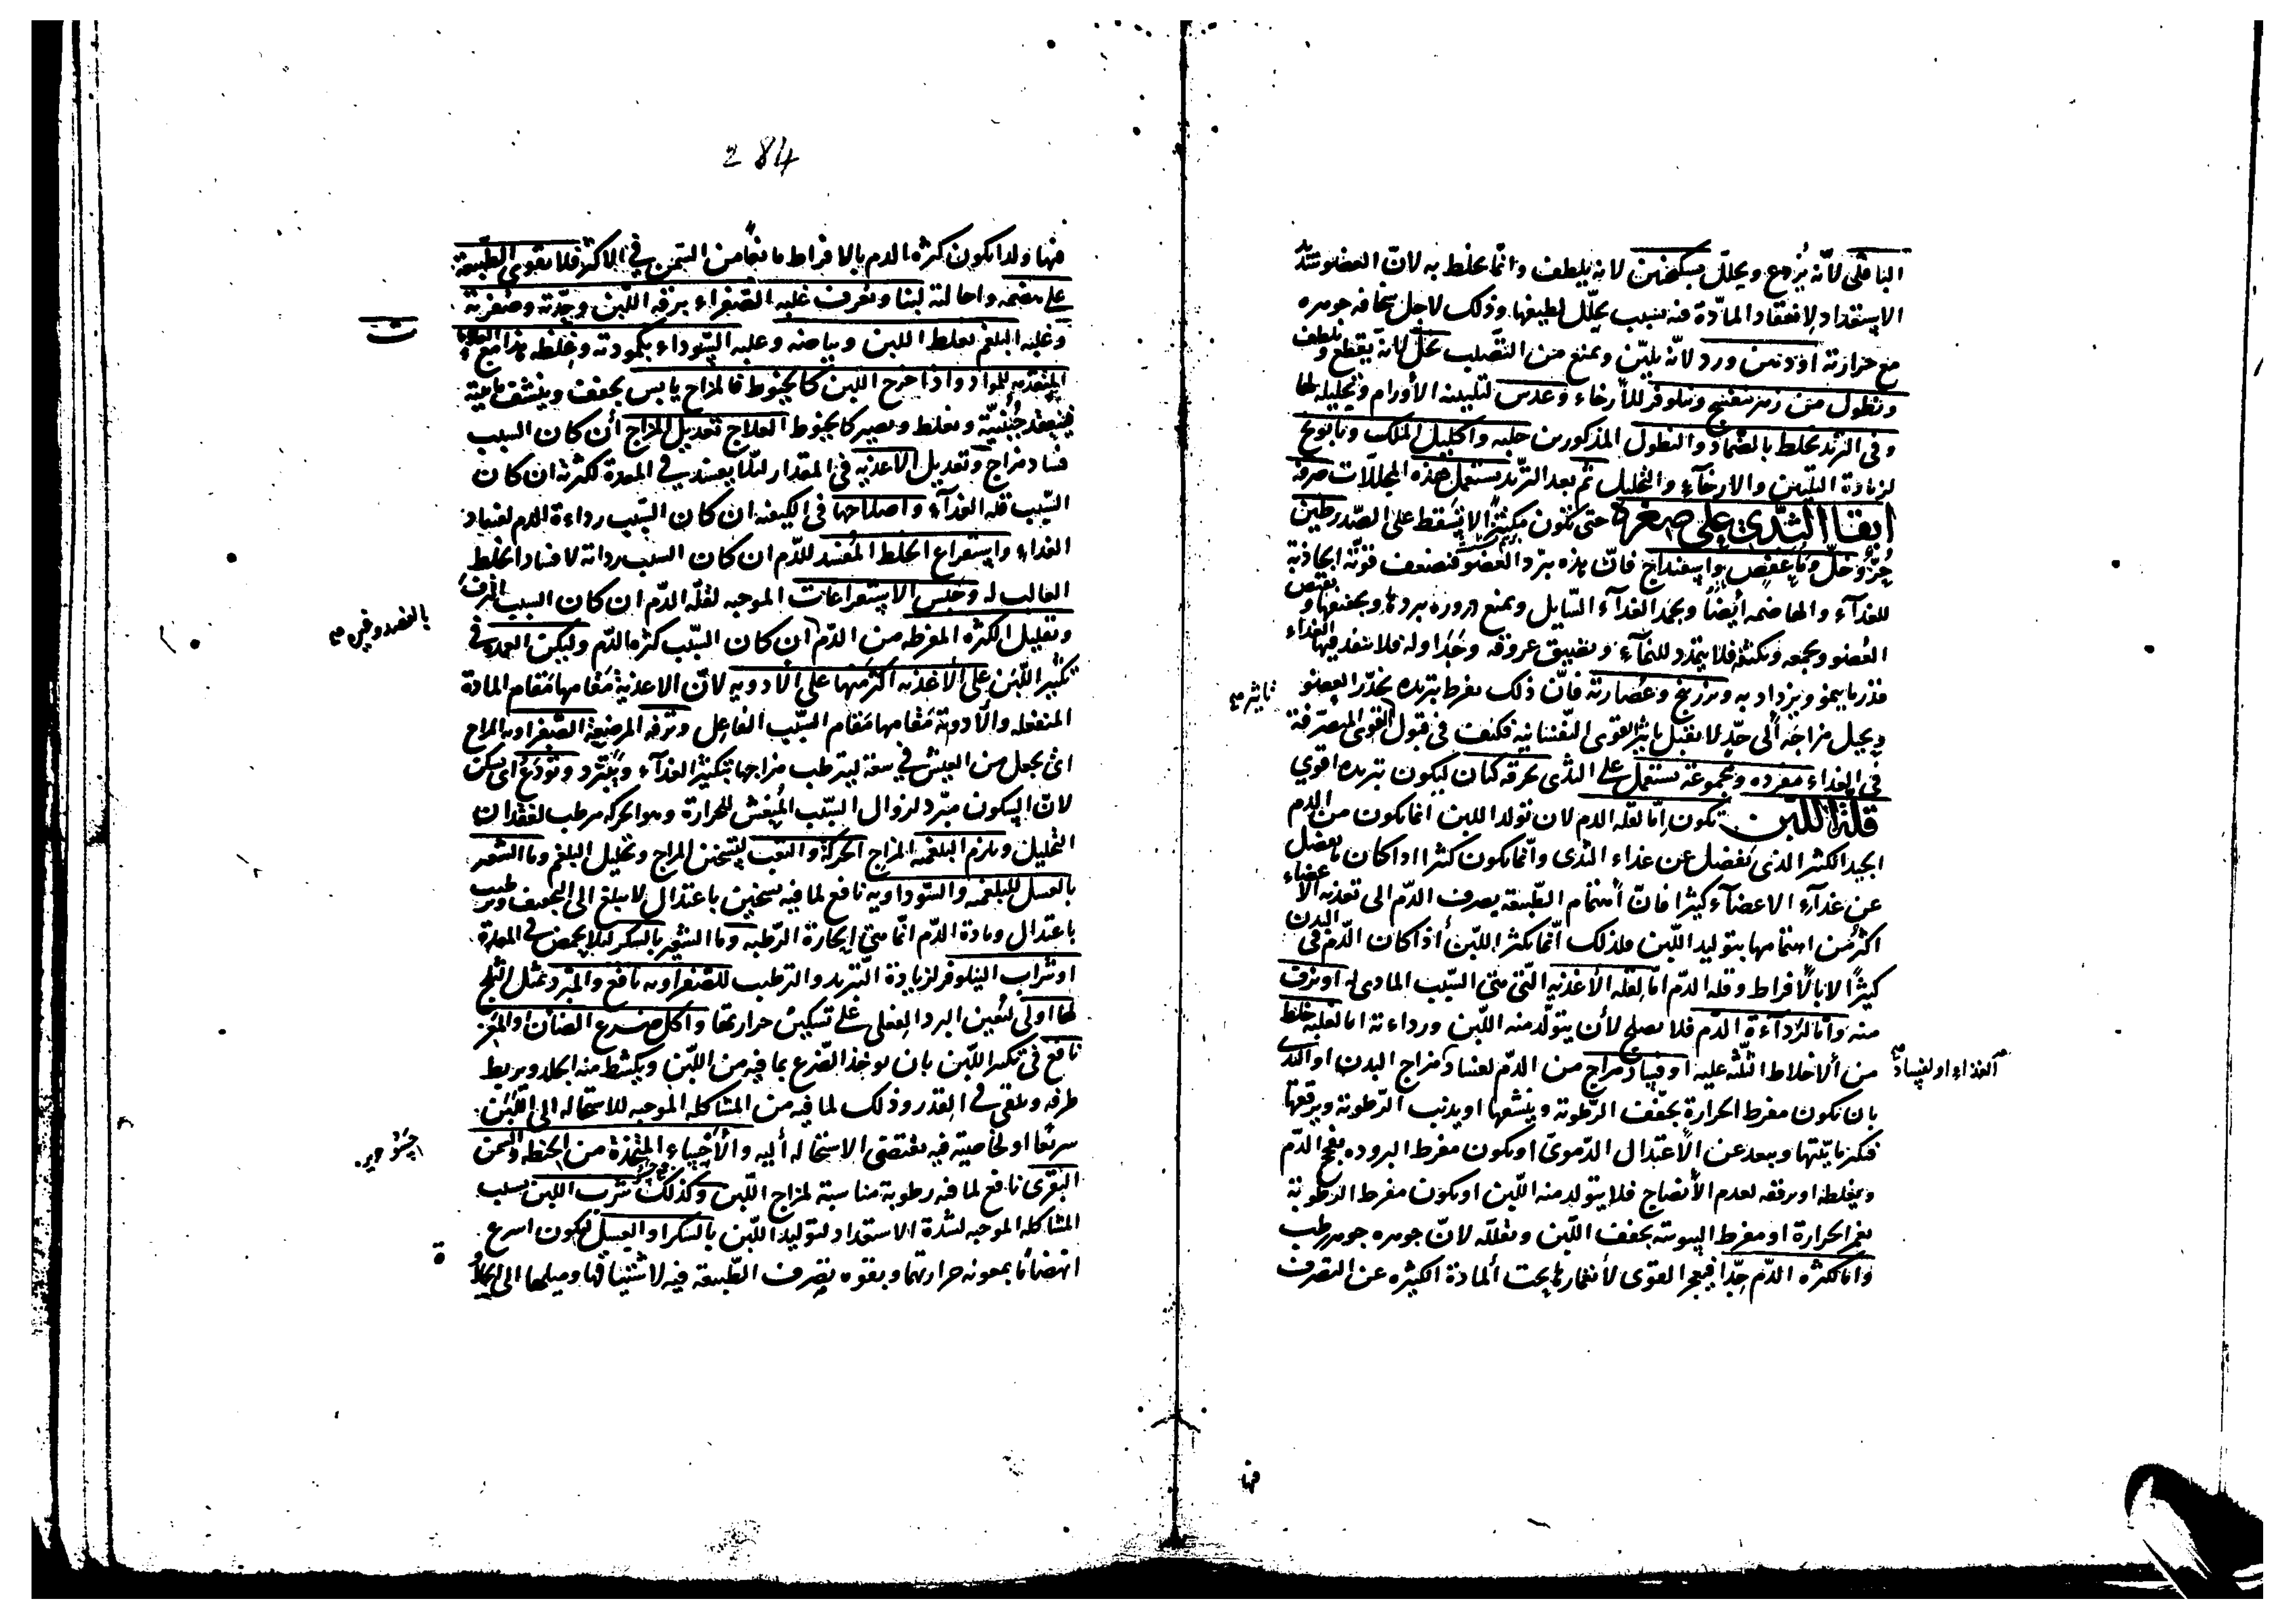 الباقلى لأنه يردع ويحلل بسكنجبين لانه يلطف وانما يخلط به لان العضو شديد
الاستعداد لانعقاد المادة فيه بسبب تحلل لطيفها وذلك لاجل سخافه جوهره
مع حرارته او دهن ورد لانه يلين ويمنع من التصلب بخل لانه يقطع ويلطف
ونطول من بنفسج ونيلوفر للارخاء وعدس لتليينه الأورام وتحليله لها
وفى التزيد يخلط بالضماد والنطول المذكورين حلبه واكليل الملك وبابونج
لزيادة التليين والارخآء والتحليل ثم بعد التزيد يستعمل هذه المحللات صرفه
ابقا الثدي على صغره حتى تكون مكتنزا لا يسقط على الصدر طين
حر وخل وعفص واسفيداج فان هذه تبرد العضو فتضعف قوته الجاذبة
للغذآء والهاضمه أيضا ويجمد الغذآء السايل ويمنع وروده ببردها وبجفيفها وتقبض
العضو ويجمعه ويكثفه فلا يتمدد للنمآء وتضييق عروقه وجداوله فلا ينفذ فيها الغذاء
قدر ما ينمو ويزداد به وبزربنج وعصارته فان ذلك بفرط تبريده يخدر العضو
ويحيل مزاجه الى حد لا يقبل تاثير القوى النفسانيه فكيف فى قبول القوى المتصرفة
تاثير صح
فى الغذاء مفرده ومجموعة تستعمل على الثدى بخرقه كتان ليكون تبريده اقوي
قلة اللبن تكون اما لقله الدم لان تولد اللبن انما يكون من الدم
الجيد الكثير الذى يفضل عن غذاء الثدى وانما يكون كثيرا اذا كان ما يفضل
عن غذآء الاعضآء كثيرا فان اهتمام الطبيعة بصرف الدم الى تغذيه الاعضاء
اكثر من اهتمامها بتوليد اللبن فلذلك انما يكثر اللبن اذا كان الدم فى البدن
كثيرا لا بالافراط وقله الدم اما لقله الأغذيه التى هى السبب المادى له او نزف
منه واما لردآءة الدم فلا يصلح لأن يتولد منه اللبن ورداءته اما لغلبة خلط
من الاخلاط الثلثه عليه او فساد مزاج من الدم لفساد مزاج البدن او الثدى
الغذاء او لفساد صح
بان يكون مفرط الحرارة يجفف الرطوبة وينشفها او يذيب الرطوبة ويرققها
فتكثر مائيتها ويبعد عن الاعتدال الدموى او يكون مفرط البروده يفجج الدم
ويغلظه او يرققه لعدم الأنضاج فلا يتولد منه اللبن او يكون مفرط الرطوبة
يغمر الحرارة او مفرط اليبوسة يجفف اللبن ويقلله لان جوهره جوهر رطب
واما لكثره الدم جدا فيعجز القوى لأنغمارها تحت المادة الكثيره عن التصرف
فيها
284
فيها ولذا يكون كثره الدم بالافراط مانعا من السمن فى الاكثر فلا تقوى الطبيعة
على هضمه واحالته لبنا وتعرف غلبه الصفراء برقه اللبن وحدته وصفرته
وغلبه البلغم بغلظ اللبن وبياضه وغلبه السوداء بكمودته وغلظه هذا مع العلامات
المتقدمه للمواد واذا خرج اللبن كالخيوط فالمزاج يابس يجفف وينشف مائية
فينعقد جبنيته ويغلظ ويصير كالخيوط العلاج تعديل المزاج أن كان السبب
فساد مزاج وتعديل الاغذيه فى المقدار لئلا يفسد فى المعدة لكثرته ان كان
السبب قله الغذآء واصلاحها فى الكيفيه ان كان السبب رداءة الدم لفساد
الغذاء واستفراغ الخلط المفسد للدم ان كان السبب رداته لافساد الخلط
الغالب له وحبس الاستفراغات الموجبه لقله الدم ان كان السبب النزف
وتقليل الكثره المفرطه من الدم ان كان السبب كثره الدم وليكن العمده فى
بالفصد وغيره صح
تكثير اللبن على الأغذيه اكثر منها على الأدويه لان الاغذية مقامها مقام المادة
المنفعله والأدوية مقامها مقام السبب الفاعل وترفه المرضعة الصفراويه المزاج
اى يجعل من العيش فى سعة ليترطب مزاجها بتكثير الغذآء ويبرد وتودع اى تسكن
لان السكون مبرد لزوال السبب المنعش للحرارة وهو الحركه مرطب لفقدان
التحليل ويلزم البلغميه المزاج الحركة والتعب لتسخين المزاج وتحليل البلغم وما الشعير
بالعسل للبلغميه والسوداويه نافع لما فيه تسخين باعتدال لا يبلغ الى التجفيف وترطيب
باعتدال ومادة الدم انما هى الحارة الرطبه وما الشعير بالسكر لئلا يحمض فى المعدة
او شراب النيلوفر لزيادة التبريد والترطيب للصفراويه نافع والمبرد بمثل الثلج
لها اولى لتعين البرد الفعلى على تسكين حرارتها واكل ضرع الضان او المعز
نافع فى تكثير اللبن بان يوخذ الضرع بما فيه من اللبن ويكشط منه الجلد ويربط
طرفه ويلقى فى القدر وذلك لما فيه من المشاكله الموجبه للاستحاله الى اللبن
سريعا او لخاصية فيه تقتضى الاستحاله أليه والأحساء المتخذة من الحنطه والسمن
البقرى نافع لما فيه رطوبة مناسبة لمزاج اللبن وكذلك شرب اللبن بسبب
المشاكله الموجبه لشدة الاستعداد لتوليد اللبن بالسكر او العسل ليكون اسرع
انهضاما بمعونه حرارتهما وبقوه تصرف الطبيعة فيه لاشتياقها وميلها الى الحلاوة